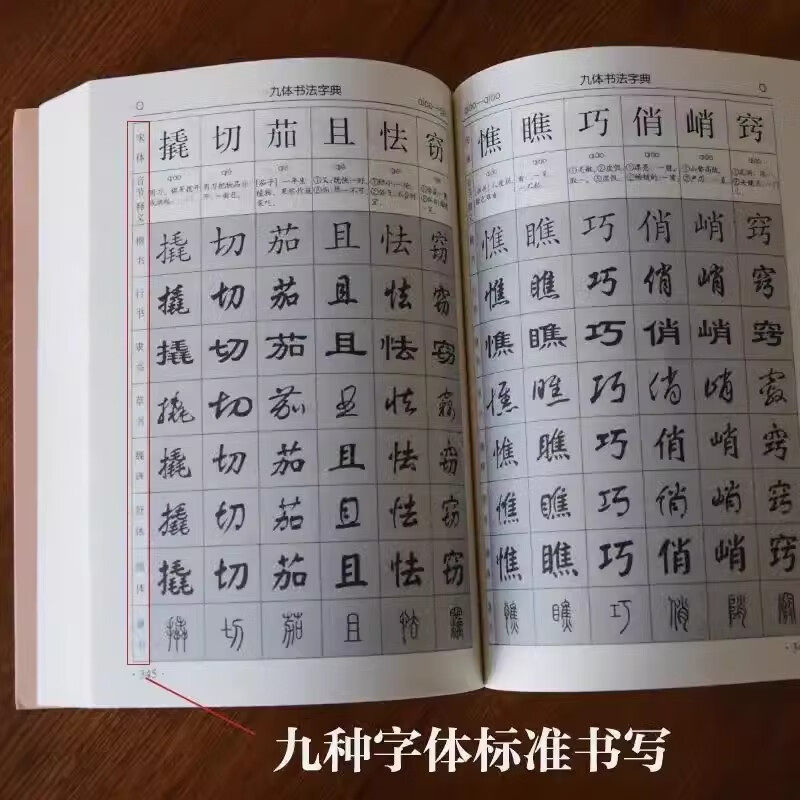 九体书法字典
宋体 撬 切 茄 且 怯 窃
音节释义 qiào qiē qié qiě qiè qiè
楷书 撬 切 茄 且 怯 窃
行书 撬 切 茄 且 怯 窃
隶书 撬 切 茄 且 怯 窃
草书 撬 切 茄 且 怯 窃
魏碑 撬 切 茄 且 怯 窃
撬 切 茄 且 怯 窃
颜体 撬 切 茄 且 怯 窃
篆书 撬 切 茄 且 怯 窃
·345·
九体书法字典
憔 瞧 巧 俏 峭 窍
憔 瞧 巧 俏 峭 窍
憔 瞧 巧 俏 峭 窍
憔 瞧 巧 俏 峭 窍
憔 瞧 巧 俏 峭 窍
憔 瞧 巧 俏 峭 窍
憔 瞧 巧 俏 峭 窍
憔 瞧 巧 俏 峭 窍
憔 瞧 巧 俏 峭 窍
九种字体标准书写